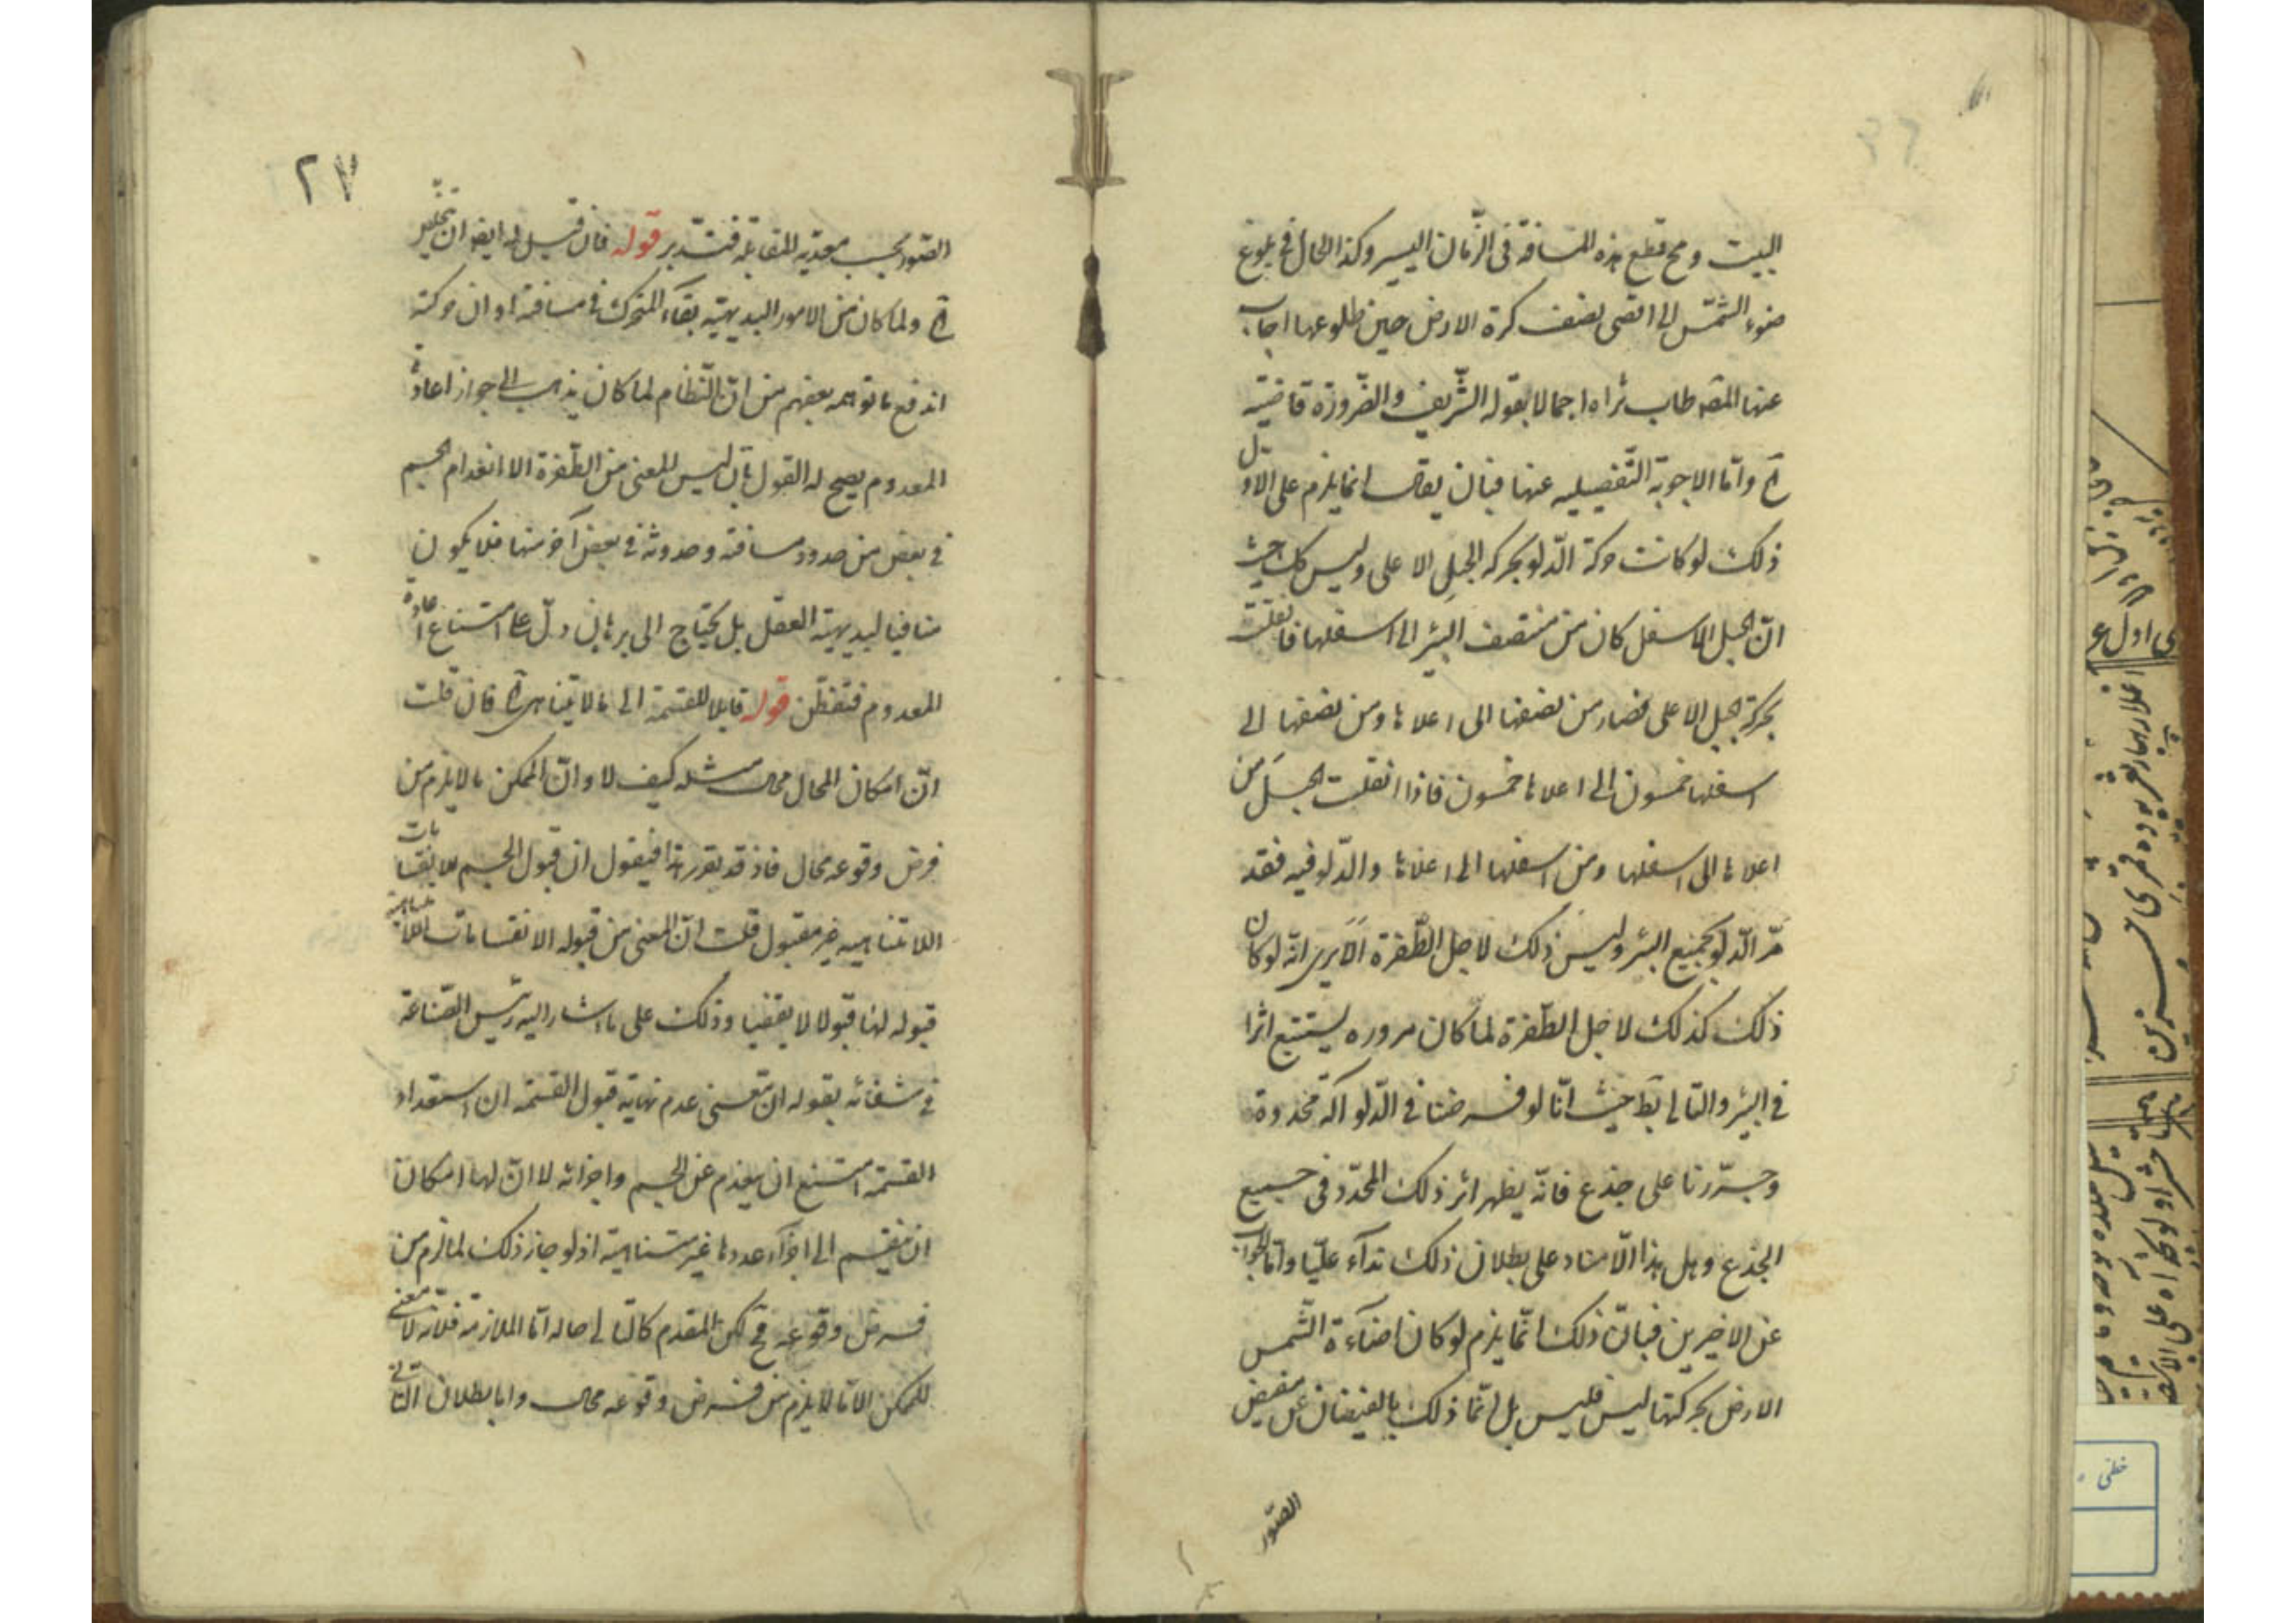 البيت ومح قطع هذه المسافة في الزمان اليسير وكذا الحال في بلوغ
ضوء الشمس الى اقصى نصف كرة الارض حين طلوعها اجاب
عنها المصـ طاب ثراه اجمالا بقوله الشريف والضرورة قاضية
آه واما الاجوبة التفصيليه عنها فبان يقال انما يلزم على الاول
ذلك لو كانت حركة الدلو بحركة الحبل الاعلى وليس كك حيث
ان الحبل الاسفل كان من منتصف البئر الى اسفلها فانتقلت
بحركة حبل الاعلى فصار من نصفها الى اعلاها ومن نصفها الى
اسفلها خمسون الى اعلاها خمسون فاذا انتقلت الحبل من
اعلاها الى اسفلها ومن اسفلها الى اعلاها والدلو فيه فقد
مرّ الدلو بجميع البئر وليس ذلك لاجل الطفرة الا يرى انه لو كان
ذلك كذلك لاجل الطفرة لما كان مروره يستتبع اثرا
في البئر والتالي بط حيث انا لو فرضنا في الدلو آلة محددة
وجررنا على جذع فانه يظهر اثر ذلك المحدد في جميع
الجذع وهل هذا الا مناد على بطلان ذلك نداء عليا واما الجواب
عن الاخيرين فبان ذلك انما يلزم لو كان اضاءة الشمس
الارض بحركتها ليس فليس بل انما ذلك بالفيضان عن مفيض
الصور
٢٧
الصور بحسب معدية المقابلة فتدبر قوله فان قيل له ايضا ان
آه ولما كان من الامور البديهية بقاء المتحرك في مسافة اوان حركته
اندفع ما توهمه بعضهم من ان النظام لما كان يذهب الى جواز اعادة
المعدوم يصح له القول بان ليس للمعنى من الطفرة الا انعدام الجسم
في بعض من حدود مسافته وحدوثه في بعض آخر منها فلا يكون
منافيا لبديهية العقل بل يحتاج الى برهان دل على امتناع اعادة
المعدوم فتفطن قوله قابلا للقسمة الى ما لا يتناهى آه فان قلت
ان امكان المحال محال مثله كيف لا وان الممكن ما لا يلزم من
فرض وقوعه محال فاذ قد تقرر هذا فيقول ان قبول الجسم للانقسامات
اللامتناهيه غير مقبول قلت ان المعنى من قبوله الانقسامات اللامتناهية
قبوله لها قبولا لا يقفيا وذلك على ما اشار اليه رئيس الصناعة
في شفائه بقوله ان معنى عدم نهاية قبول القسمة ان استعداد
القسمة امتنع ان ينعدم عن الجسم واجزائه لا ان لها امكان
ان ينقسم الى اجزاء عددها غير متناهية اذ لو جاز ذلك لما لزم من
فرض وقوعه مح لكن المقدم كالتالي حاله اما الملازمة فلانه لا معنى
للممكن الا ما لا يلزم من فرض وقوعه محال واما بطلان التالي